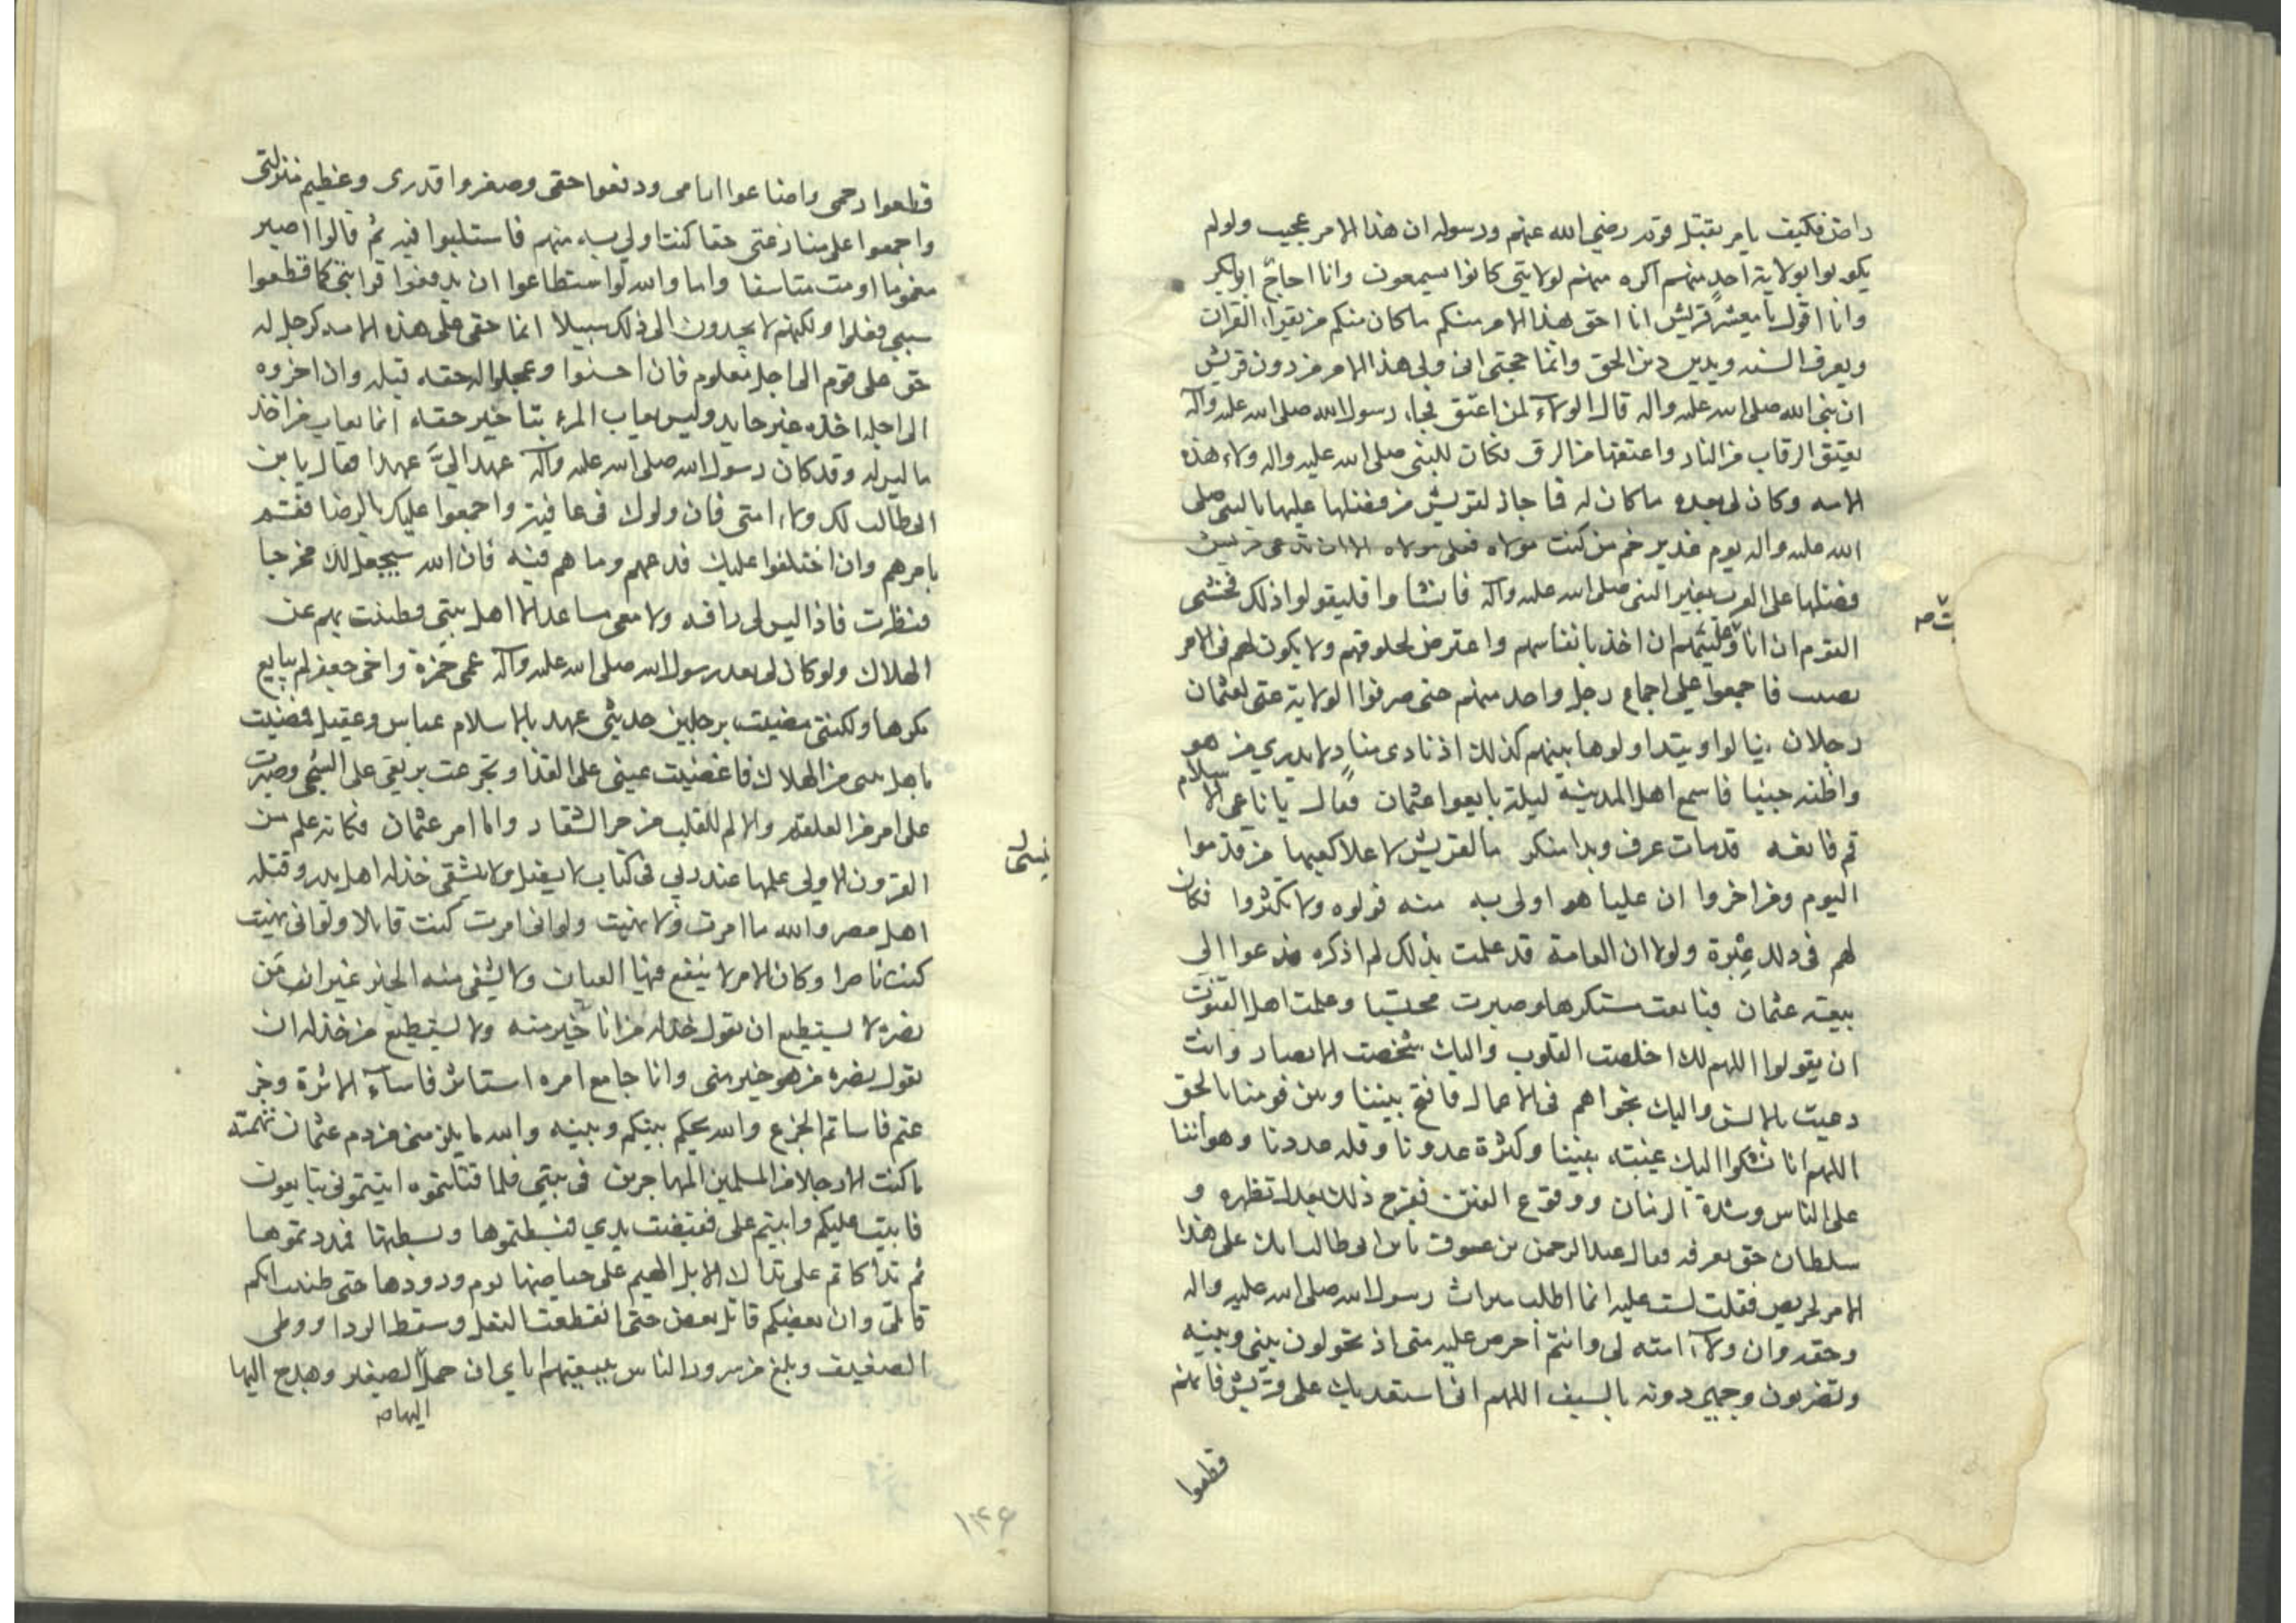 راض فكيف يامر بقتل قوم رضي الله عنهم ورسوله ان هذا الامر عجيب ولولم
يكونوا بولاية احد منهم اكره منهم لولايتي كانوا يسمعون وانا احاجّ ابابكر
وانا اقول يا معشر قريش انا احق بهذا الامر منكم ما كان منكم من يقرا القران
ويعرف السنه ويدين دين الحق وانما حجتي اني ولي هذا الامر من دون قريش
ان نبى الله صلى الله عليه واله قال الولاء لمن اعتق فجاء رسول الله صلى الله عليه وآله
بعتق الرقاب من النار واعتقها من الرق فكان للنبى صلى الله عليه واله ولاء هذه
الامه وكان لى بعده ما كان له فما جاز لقريش من فضلها عليها بالنبى صلى
الله عليه واله يوم غدير خم من كنت مولاه فعلى مولاه الا ان تدعى قريش
فضلها على العرب بغير النبى صلى الله عليه وآله فان شاوا فليقولوا ذلك فخشى
القوم ان انا وليتهم ان اخذ بانفاسهم واعترض لحلوقهم ولا يكون لهم فى الامر
ت صح
نصيب فاجمعوا على اجماع رجل واحد منهم حتى صرفوا الولاية عنى لعثمان
رجاء ان ينالوا ويتداولوها بينهم كذلك اذ نادى منادٍ لا يدرى من هو
واظنه جنيا فاسمع اهل المدينه ليلة بايعوا عثمان فقال يا ناعى الاسلام
قم فانعه قد مات عرف وبدا منكر ما لقريش لا علا كعبها من قدموا
اليوم ومن اخروا ان عليا هو اولى به منه فولوه ولا تنكروا فكان
لهم فى ذلك عِبرة ولولا ان العامة قد علمت بذلك لم اذكره فدعوا الى
بيعة عثمان فبايعت مستكرها وصبرت محتسبا وعلمت اهل القنوت
ان يقولوا اللهم لك اخلصت القلوب واليك شخصت الابصار وانت
دعيت بالالسن واليك نجواهم فى الاعمال فافتح بيننا وبين قومنا بالحق
اللهم انا نشكوا اليك غيبة نبينا وكثرة عدونا وقلة عددنا وهواننا
على الناس وشدة الزمان ووقوع الفتن ففرج ذلك بعدل تظهره و
سلطان حق نعرفه فقال عبد الرحمن بن عوف يا بن ابى طالب انك على هذا
الامر لحريص فقلت لست عليه انما اطلب ميراث رسول الله صلى الله عليه واله
وحقه وان ولاء امته لى وانتم احرص عليه منى اذ تحولون بينى وبينه
وتضربون وجهى دونه بالسيف اللهم انى استعديك على قريش فانهم
قطعوا
قطعوا رحمى واضاعوا ايامى ودفعوا حقى وصغروا قدرى وعظيم منزلتى
واجمعوا على منازعتى حقا كنت اولى به منهم فاستلبوا فيه ثم قالوا اصبر
مغموما او مت متاسفا وايم والله لو استطاعوا ان يدفعوا قرابتى كما قطعوا
سببى فعلوا ولكنهم لا يجدون الى ذلك سبيلا انما حقى على هذه الامه كرجل له
حق على قوم الى اجل معلوم فان احسنوا وعجلوا له حقه قبله وان اخروه
الى اجله اخذه غير حامد وليس يعاب المرء بتاخير حقه انما يعاب من اخذ
ما ليس له وقد كان رسول الله صلى الله عليه وآله عهد الىَّ عهدا فقال يا بن
ابى طالب لك ولاء امتى فان ولوك فى عافية واجمعوا عليك بالرضا فقم
بامرهم وان اختلفوا عليك فدعهم وما هم فيه فان الله سيجعل لك مخرجا
فنظرت فاذا ليس لى رافد ولا معى مساعد الا اهل بيتى فضننت بهم عن
الهلاك ولو كان لى بعد رسول الله صلى الله عليه وآله عمى حمزة واخى جعفر لم يبايع
مكرها ولكننى منيت برجلين حديثى عهد بالاسلام عباس وعقيل فضنيت
باهل بيتى من الهلاك فاغضيت عينى على القذا وتجرعت بريقى على الشجى وصبرت
على امر من العلقم والالم للقلب من حز الشفار واما امر عثمان فكانه علم من
القرون الاولى علمها عند ربى فى كتاب لا يضل ولا ينسى خذله اهل بدر وقتله
ينسى
اهل مصر والله ما امرت ولا نهيت ولو انى امرت كنت قاتلا ولو انى نهيت
كنت ناصرا وكان الامر لا ينفع فيها العيان ولا يشفى منه الخبر غير ان من
نصره لا يستطيع ان يقول خذله من انا خير منه ولا يستطيع من خذله ان
يقول نصره من هو خير منى وانا جامع امره استاثر فاساء الاثرة وجز
عتم فاساتم الجزع والله يحكم بينكم وبينه والله ما يلزمنى من دم عثمان تهمته
ما كنت الا رجلا من المسلمين المهاجرين فى بيتى فلما قتلتموه اتيتمونى تبايعون
فابيت عليكم وابيتم على فقبضت يدى فبسطتموها وبسطتها فمددتموها
ثم تداككتم على تداك الابل الهيم على حياضها يوم ورودها حتى ظننت انكم
قاتلى وان بعضكم قاتل بعض حتى انقطعت النعل وسقط الردا ووطى
الضعيف وبلغ من سرور الناس ببيعتهم اياى ان حمل الصغير وهدج اليها
اليها صح
۱۴۶